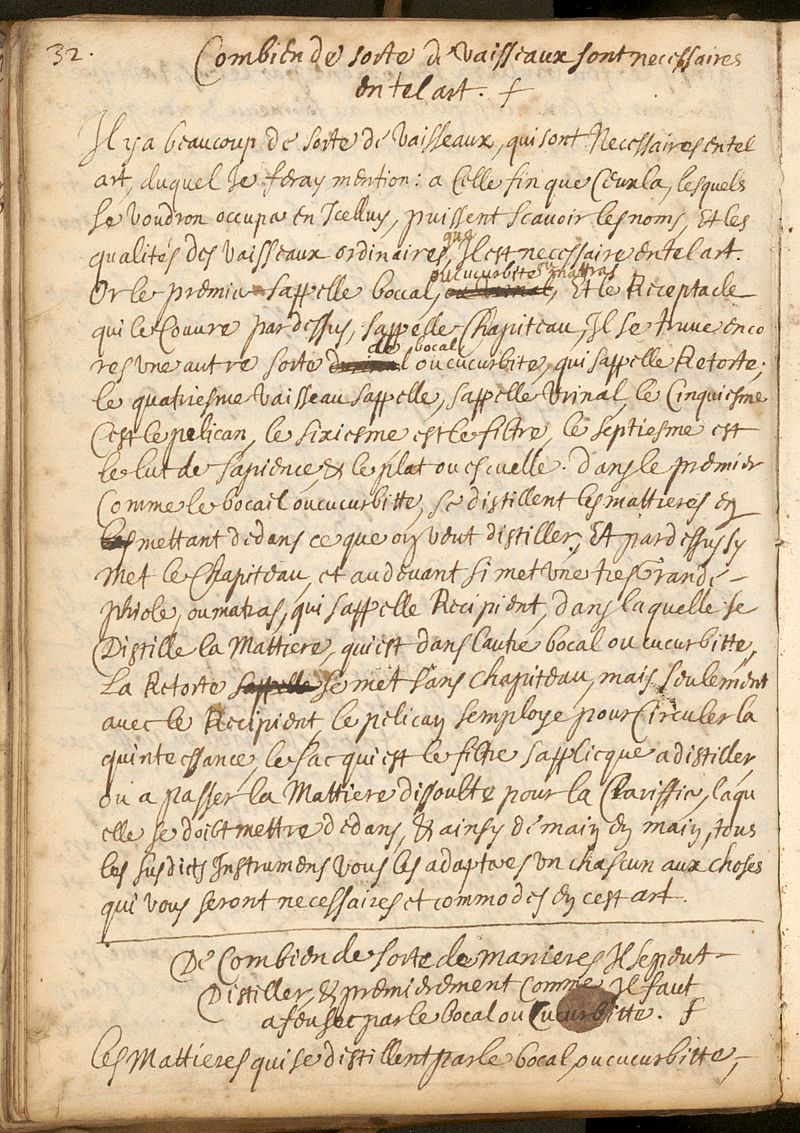 32.
Combien de sorte de vaisseaux sont necessaires
en tel art. f
Il y a beaucoup de sorte de vaisseaux, qui sont Necessaires en tel
art, duquel Je feray mention: a Celle fin que Ceux la, lesquels
se voudron occupa en Icelluy, puissent scavoir les noms, Et les
que
qualités des vaisseaux ordinaires, Il est necessaire en tel art.
ou cucurbite ou mattras
Or le premier s'appelle boccal, Et le Receptacle
qui le Couvre par dessus, s'appelle Chapiteau, Il se truve enco
de bocal
res une autre sorte ou cucurbite, qui s'appelle Retorte;
le quatriesme vaisseau sappelle, sappelle Vrinal, le Cinquiesme
C'est le pelican, le sixiesme est le filtre, le septiesme est
le lut de sapience, & le plat ou escuelle. Dans le premier
Comme le bocail ou cucurbitte, se distillent les mattieres en
les mettant dedans ce que on veut distiller, Et par dessus sy
met le Chapiteau, et au devant si met une tres Grande -
phiole, ou matras, qui s'appelle Recipient, dans laquelle se
Distille la Mattiere, qui est dans l'autre bocal ou cucurbitte,
La Retorte sappelle se met sans chapiteau, mais seulement
avec le Recipient, le pelican s'employe pour Circuler la
quintessance, le sac qui est le filtre s'applicque a distiller,
ou a passer la Mattiere dissoulte pour la Clariffier, laqu
elle se doibt mettre dedans, & ainsy de main en main, tous
les susdicts Instrumens vous les adapteres un chascun aux choses
qui vous seront necessaires et commodes en cest art.
De Combien de sorte de manieres Il se peut -
Distiller, & premierement Comme Il faut
a feu sec par le bocal ou Cucurbitte. f
Les Mattieres qui se distillent par le bocal, ou cucurbitte, -